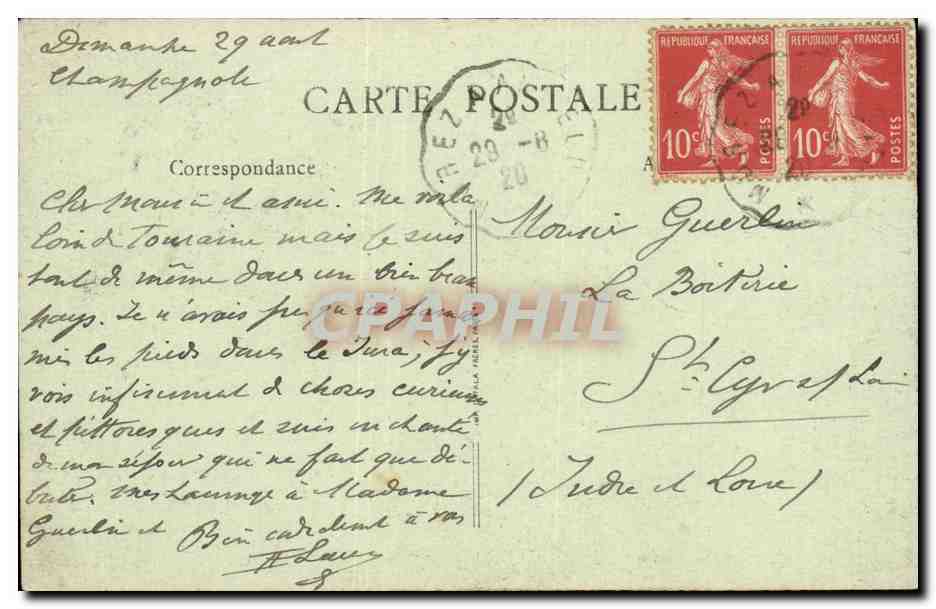 Dimanche 29 aout
Champagnole
CARTE POSTALE
Correspondance
REZ
29 -8
20
REPUBLIQUE FRANÇAISE
10c
POSTES
REPUBLIQUE FRANÇAISE
10c
POSTES
Cher Monsieur et ami. Me voila
loin de Touraine mais je suis
tout de même dans un bien beau
pays. Je n'avais jusqu'ici jamais
mis les pieds dans le Jura, j'y
vois infiniment de choses curieuses
et pittoresques et suis enchanté
de mon séjour qui ne fait que dé-
buter. Mes hommages à Madame
Guerlin et Bien cordialement à vous
Monsieur Guerlin
La Boiterie
St Cyr s/ Loire
(Indre et Loire)
CPAPHIL